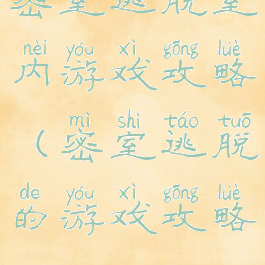 密室逃脱室
nèi yóu xì gōng lüè
内游戏攻略
mì shì táo tuō
（密室逃脱
de yóu xì gōng lüè
的游戏攻略